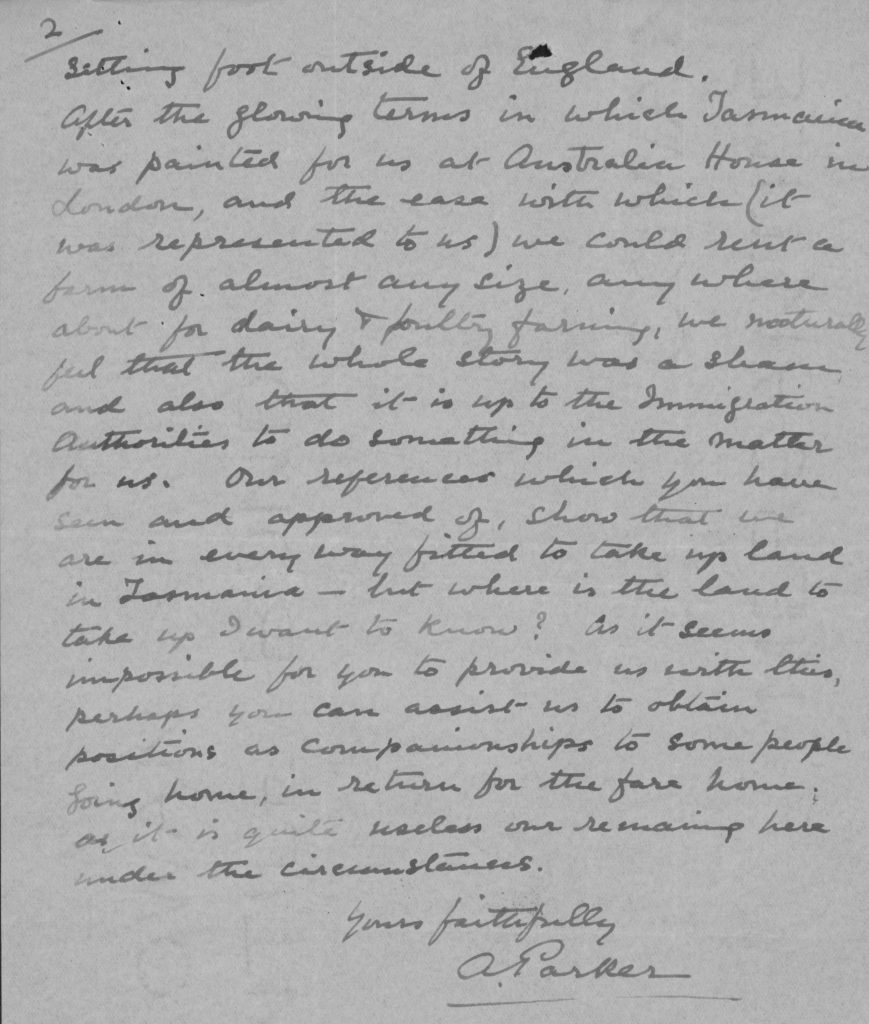 2
setting foot outside of England.
After the glowing terms in which Tasmania
was painted for us at Australia House in
London, and the ease with which (it
was represented to us) we could rent a
farm of almost any size, any where
about for dairy & poultry farming, we naturally
feel that the whole story was a sham
and also that it is up to the Immigration
Authorities to do something in the matter
for us. Our references which you have
seen and approved of, show that we
are in every way fitted to take up land
in Tasmania – but where is the land to
take up I want to know? As it seems
impossible for you to provide us with this,
perhaps you can assist us to obtain
positions as companionships to some people
going home, in return for the fare home.
as it is quite useless our remaing here
under the circumstances.
Yours faithfully
A. Parker